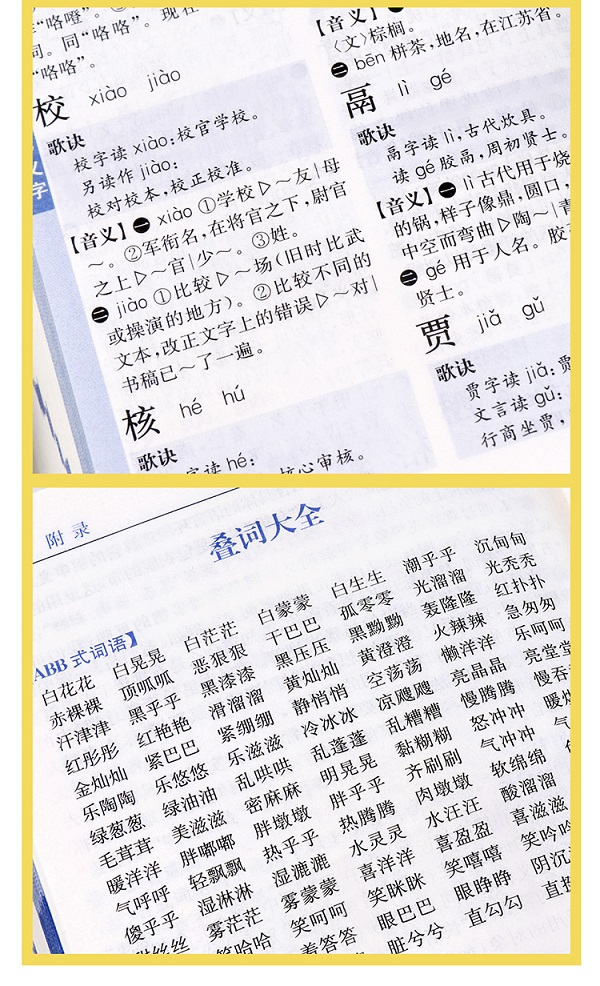 "咯噔"
同。同"咯咯"。现在
"咯咯"。
校 xiào jiào
歌诀
校字读 xiào:校官学校。
另读作 jiào:
校对校本,校正校准。
【音义】㊀ xiào ①学校▷～友|母
～。②军衔名,在将官之下,尉官
之上▷～官|少～。③姓。
㊁ jiào ①比较▷～场(旧时比武
或操演的地方)。②比较不同的
文本,改正文字上的错误▷～对|
书稿已～了一遍。
核 hé hú
歌诀
字读 hé:
核心审核。
【音义】㊀
〈文〉棕榈。
㊁ bēn 栟茶,地名,在江苏省。
鬲 lì gé
歌诀
鬲字读 lì,古代炊具。
读 gé 胶鬲,周初贤士。
【音义】㊀ lì 古代用于烧
的锅,样子像鼎,圆口,
中空而弯曲▷陶～|青
㊁ gé 用于人名。胶
贤士。
贾 jiǎ gǔ
歌诀
贾字读 jiǎ:贾
文言读 gǔ:
行商坐贾,
附录
叠词大全
ABB 式词语】
白花花 白晃晃 白茫茫 白蒙蒙 白生生 潮乎乎 沉甸甸
赤裸裸 顶呱呱 恶狠狠 干巴巴 孤零零 光溜溜 光秃秃
汗津津 黑乎乎 黑漆漆 黑压压 黑黝黝 轰隆隆 红扑扑
红彤彤 红艳艳 滑溜溜 黄灿灿 黄澄澄 火辣辣 急匆匆
金灿灿 紧巴巴 紧绷绷 静悄悄 空荡荡 懒洋洋 乐呵呵
乐陶陶 乐悠悠 乐滋滋 冷冰冰 凉飕飕 亮晶晶 亮堂堂
绿葱葱 绿油油 乱哄哄 乱蓬蓬 乱糟糟 慢腾腾 慢吞
毛茸茸 美滋滋 密麻麻 明晃晃 黏糊糊 怒冲冲 暖
暖洋洋 胖嘟嘟 胖墩墩 胖乎乎 齐刷刷 气冲冲 气
气呼呼 轻飘飘 热乎乎 热腾腾 肉墩墩 软绵绵
傻乎乎 湿淋淋 湿漉漉 水灵灵 水汪汪 酸溜溜
甜丝丝 雾茫茫 雾蒙蒙 喜洋洋 喜盈盈 喜滋滋
笑哈哈 笑呵呵 笑眯眯 笑嘻嘻 笑吟吟
羞答答 眼巴巴 眼睁睁 阴沉
脏兮兮 直勾勾 直